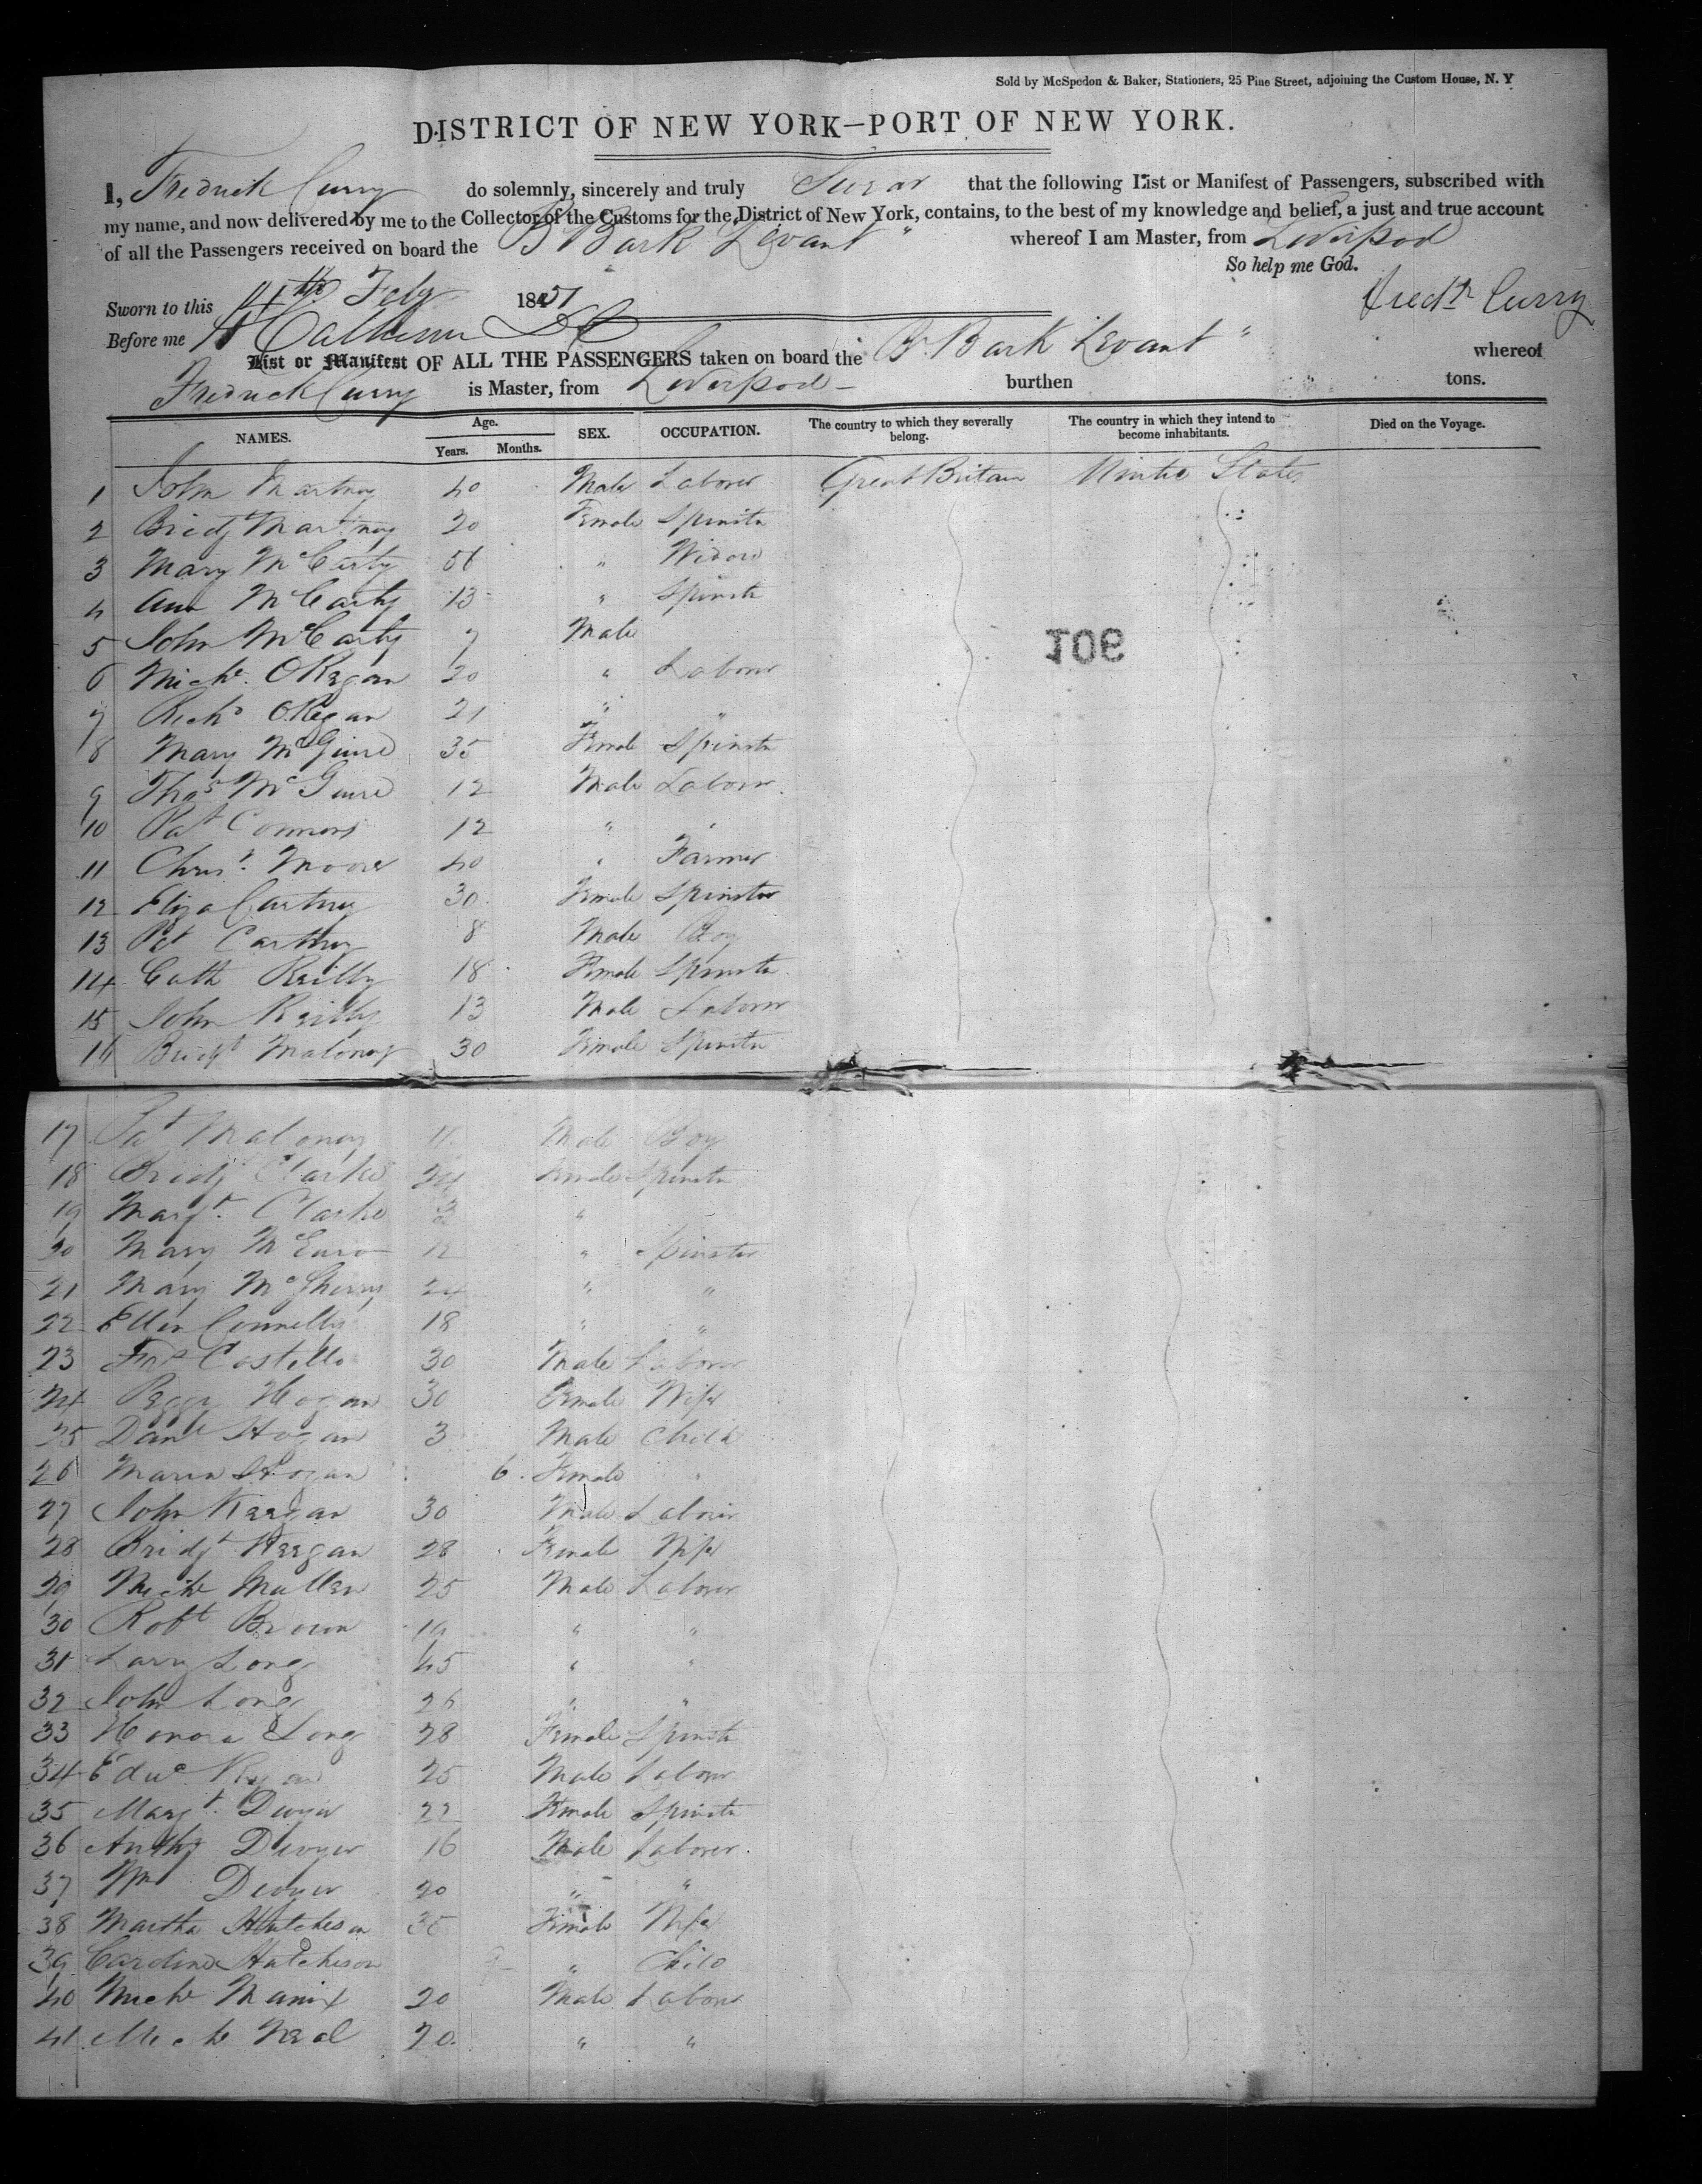 Sold by McSpedon & Baker, Stationers, 25 Pine Street, adjoining the Custom House, N. Y
DISTRICT OF NEW YORK—PORT OF NEW YORK.
I, Fredrick Curry do solemnly, sincerely and truly Swear that the following List or Manifest of Passengers, subscribed with
my name, and now delivered by me to the Collector of the Customs for the District of New York, contains, to the best of my knowledge and belief, a just and true account
of all the Passengers received on board the B Bark Levant " whereof I am Master, from Liverpool
So help me God.
Sworn to this 14th Feby 1851 Fredk Curry
Before me
List or Manifest OF ALL THE PASSENGERS taken on board the Br. Bark Levant " whereof
Fredrick Curry is Master, from Liverpool burthen tons.
NAMES. Age. Years. Months. SEX. OCCUPATION. The country to which they severally belong. The country in which they intend to become inhabitants. Died on the Voyage.
1 John Martney 40 Male Laborer Great Britain United States
2 Bridgt Martney 20 Female Spinstr
3 Mary McCarty 56 " Widow
4 Ann McCarty 13 " Spinstr
5 John McCarty 7 Male
901
6 Michl. O Regan 20 " Laborer
7 Richd O Regan 21 " "
8 Mary McGuire 35 Female Spinstr
9 Thos McGuire 12 Male Laborer
10 Pat Connors 12 " "
11 Chrisr. Moore 40 " Farmer
12 Eliza Cartney 30 Female Spinster
13 Pat Cartney 8 Male Boy
14 Cath Reilly 18 Female Spinstr
15 John Reilly 13 Male Laborer
16 Bridgt Maloney 30 Female Spinstr
17 Pat Maloney 11 Male Boy
18 Bridgt Clarke 24 Female Spinstr
19 Margt. Clarke 3 "
20 Mary 12 " Spinster
21 Mary McSherry 24 " "
22 Ellen Connelly 18 " "
23 Costello 30 Male Laborer
24 Peggy Hogan 30 Female Wife
25 Danl Hogan 3 Male Child
26 Maria Hogan 6 Female "
27 John Keegan 30 Male Laborer
28 Bridgt Keegan 28 Female Wife
29 Michl Mullen 25 Male Laborer
30 Robt Brown 19 " "
31 Larry Long 45 " "
32 John Long 26 " "
33 Honora Long 28 Female Spinstr
34 Edwd 25 Male Laborer
35 Margt. Dwyer 22 Female Spinstr
36 Anthy Dwyer 16 Male Laborer
37 Wm Dwyer 20 " "
38 Martha Hutcheson 35 Female Wife
39 Caroline Hutcheson 9 " Child
40 Michl Manix 20 Male Laborer
41 Michl Neal 20 " "